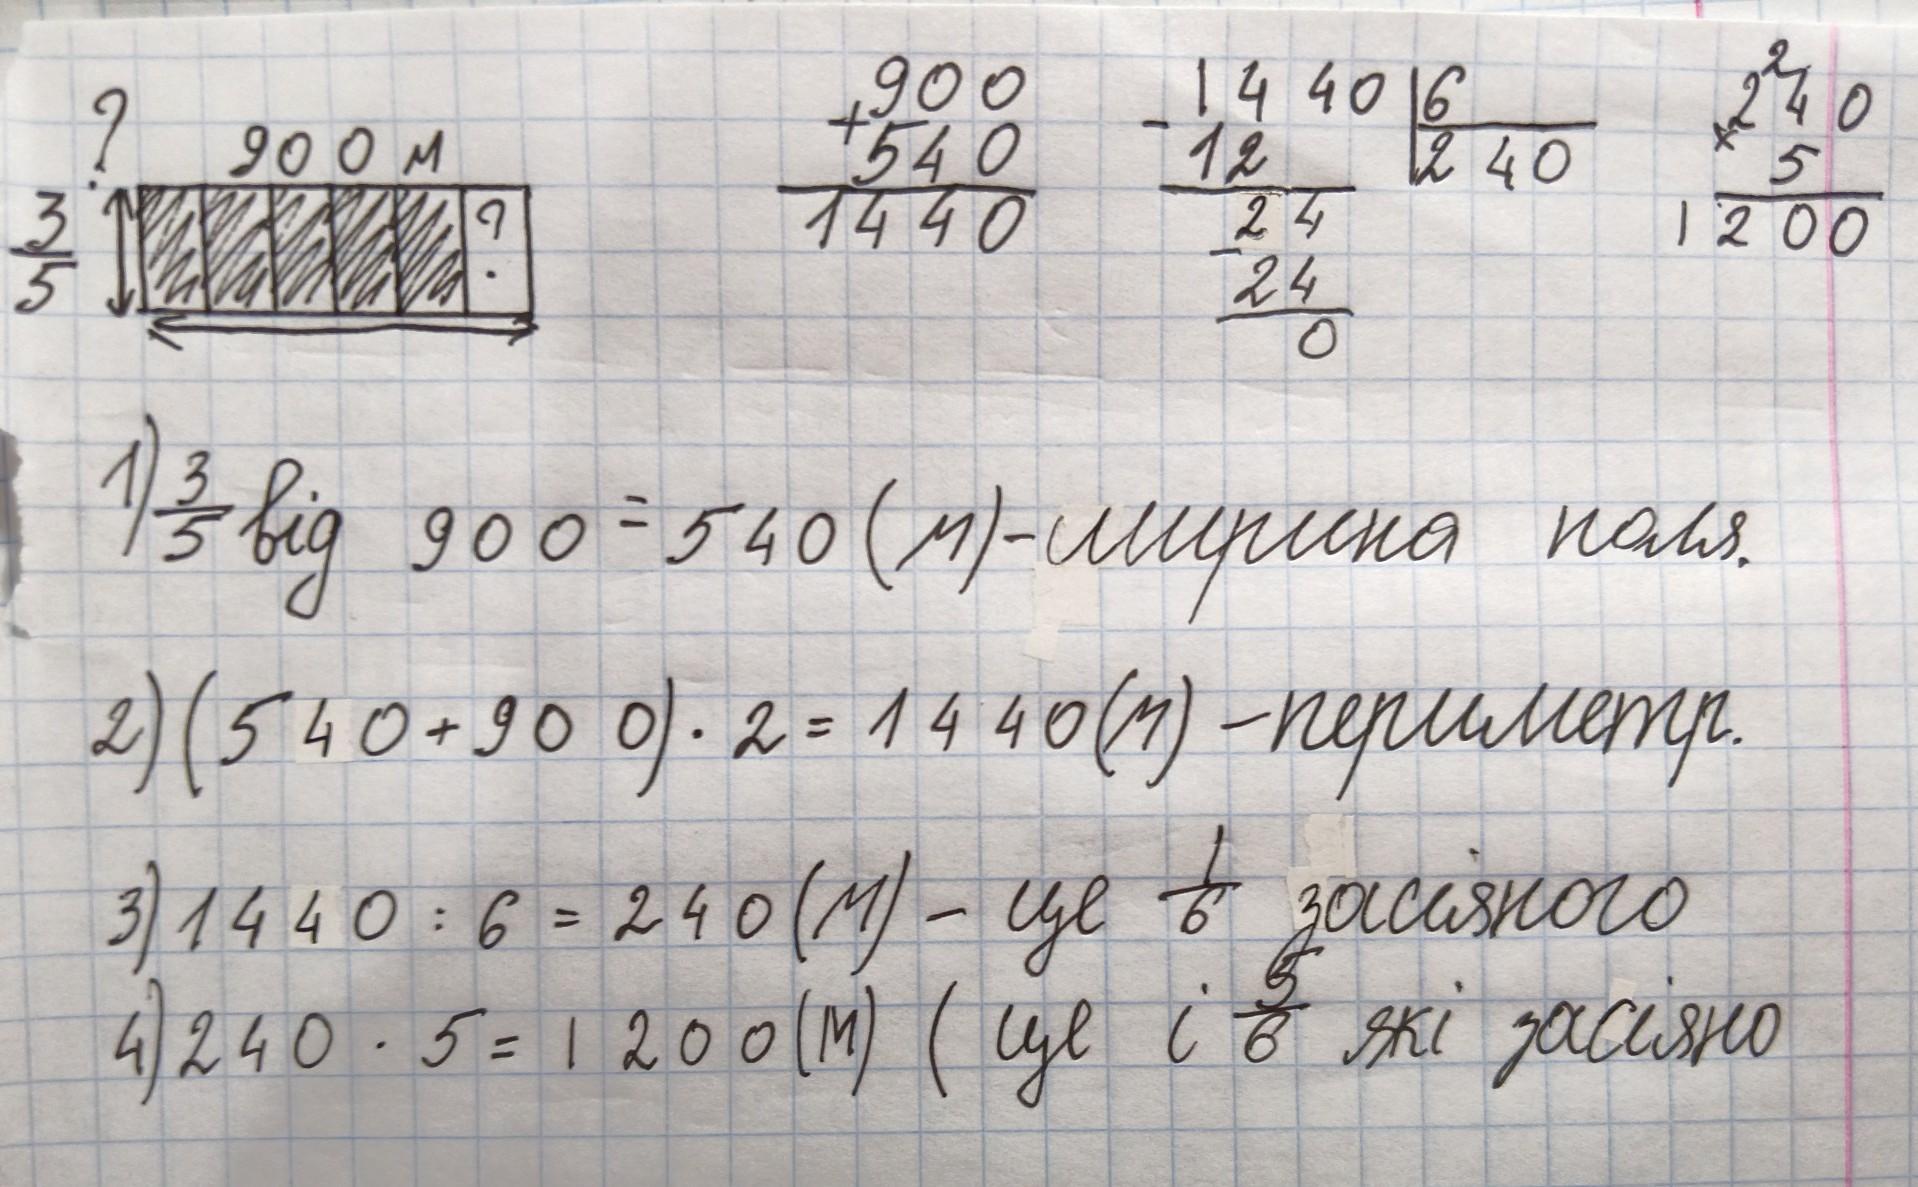 ?
900 м
3/5
?
900
+ 540
1440
- 1440 | 6
12 | 240
- 24
24
0
2
240
× 5
1200
1) 3/5 від 900 = 540 (м) - ширина поля.
2) (540 + 900) · 2 = 1440 (м) - периметр.
3) 1440 : 6 = 240 (м) - це 1/6 засіяного
4) 240 · 5 = 1200 (м) ( це і 5/6 які засіяно